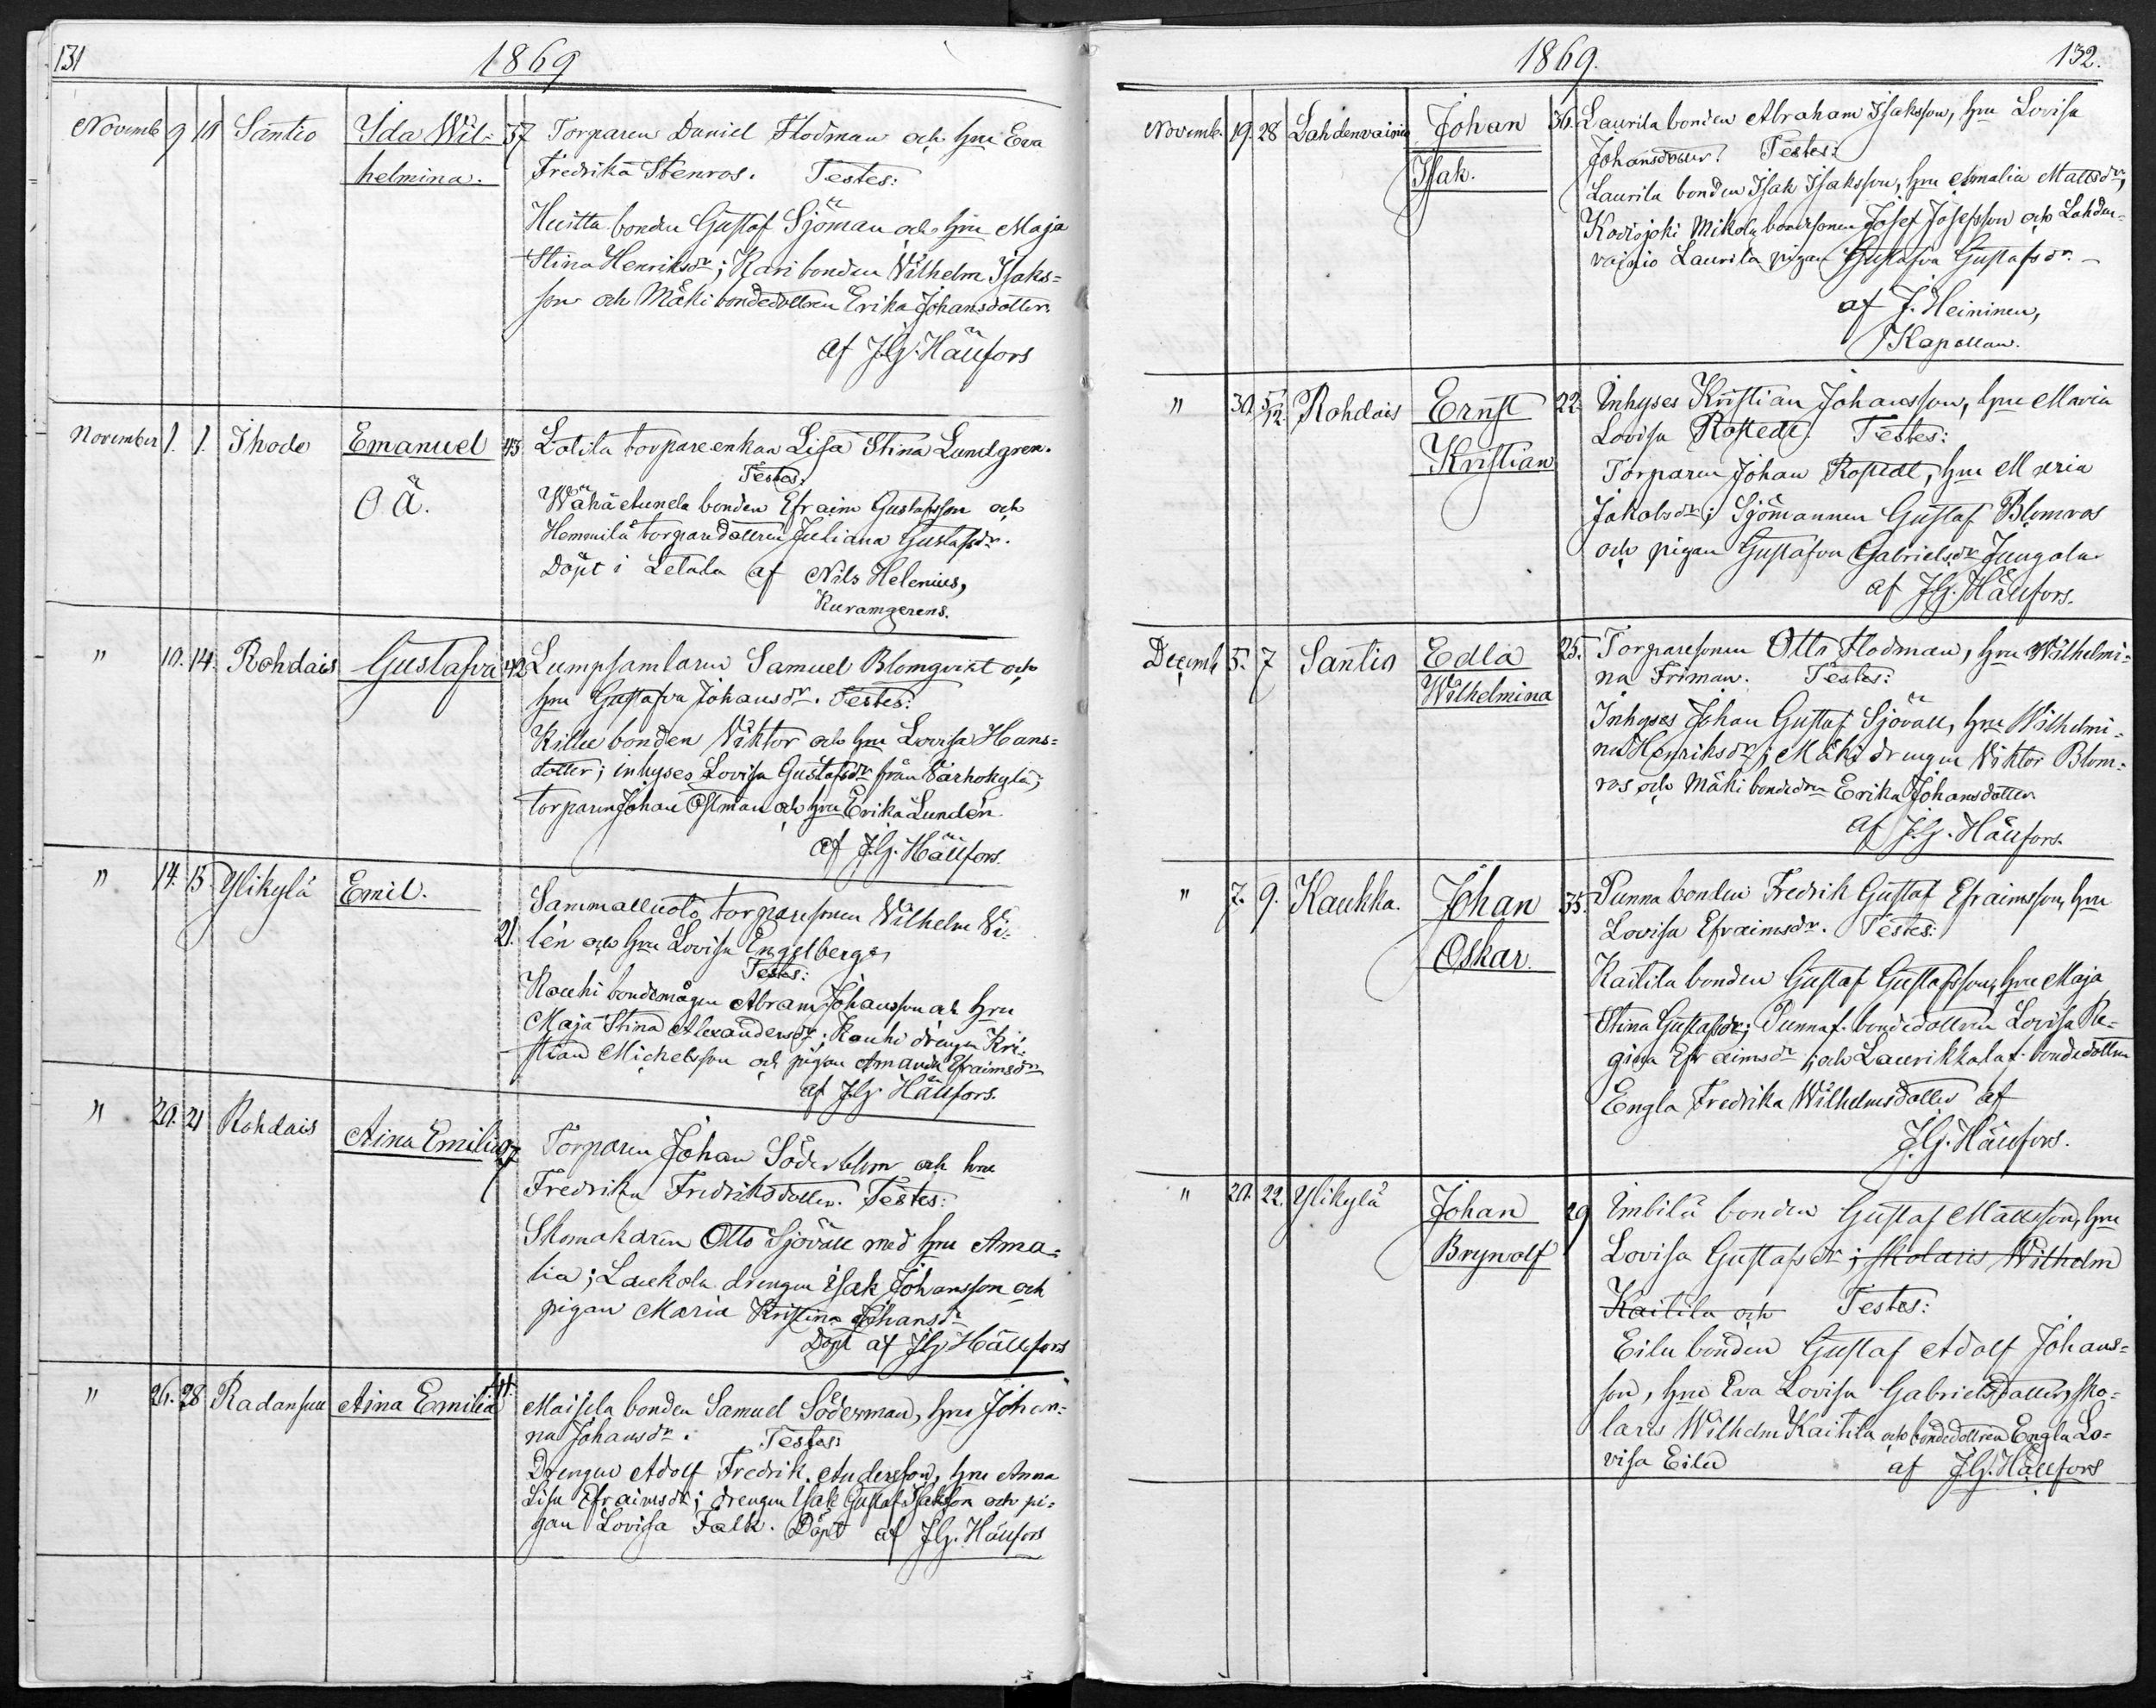 131
1869
Novemb 9 10 Santio Ida Wil= 37 Torparen Daniel Flodman och hu Eva
helmina. Fredrika Stenros. Testes:
Huitta bonden Gustaf Sjöman och hu Maja
Stina Henriksdr; Kari bonden Wilhelm Isaks=
son och Mäki bondedottren Erika Johansdotter.
af J.G. Hällfors
November 1. 1. Ihode Emanuel 43. Lalila torpareenkan Lisa Stina Lundgren.
Oä. Testes:
Wähä bonden Efraim Gustafsson och
Hemmilä torparedottren Juliana Gustafsdr.
Döpt i Letala af Nils Helenius,
" 10. 14. Rohdais Gustafva 42 Lumpsamlaren Samuel Blomqvist och
hu Gustafva Johansdr. Testes:
Killu bonden Viktor och hu Lovisa Hans=
dotter; inhyses Lovisa Gustafsdr från Varhokylä;
torparen Johan Östman och hu Erika Lundén.
af J.G. Hällfors.
" 14. 15 Ylikylä Emil. Sammalluoto torparesonen Wilhelm Vi=
21. lén och hu Lovisa Engelberg.
Testes:
Rauhi bondemågen Abram Johansson och hu
Maja Stina Alexandersdr; Rauhi drengen Kri=
stian Michelsson och pigan Amanda Efraimsdr
af J.G. Hällfors.
" 20. 21 Rohdais Aina Emilia 27 Torparen Johan Söderblom och hu
Fredrika Fredriksdotter. Testes:
Skomakaren Otto Sjövall med hu Ama=
lia; Laukola drengen Isak Johansson och
pigan Maria Kristina Johansdr
Döpt af J.G. Hällfors
" 26. 28 Radansuu Aina Emilia 41. Maisila bonden Samuel Söderman, hu Johan=
na Johansdr. Testes:
Drengen Adolf Fredrik Andersson, hu Anna
Lisa Efraimsdr; drengen Isak Gustaf Isaksson och pi=
gan Lovisa Falk. Döpt af J.G. Hällfors
1869.
132.
Novemb. 19. 28 Lahdenvainio Johan 36. Laurila bonden Abraham Isaksson, hu Lovisa
Isak. Johansdotter. Testes:
Laurila bonden Isak Isaksson, hu Amalia Mattsdr;
Kodisjoki Mikola bondsonen Josef Josefsson och Lahden=
vainio Laurila pigan Gustafva Gustafsdr. –
af J. Heininen,
Kapellan.
" 30. 5/12. Rohdais Ernst 22. Inhyses Kristian Johansson, hu Maria
Kristian Lovisa Rostedt. Testes:
Torparen Johan Rostedt, hu Maria
Jakobsdr; Sjömannen Gustaf Blomros
och pigan Gustafva Gabrielsdr Juugola
af J.G. Hällfors.
Decemb 5. 7 Santio Edla 25. Torparesonen Otto Flodman, hu Wilhelmi=
Wilhelmina na Friman. Testes:
Inhyses Johan Gustaf Sjövall, hu Wilhelmi=
na Henriksdr; Mäki drengen Viktor Blom=
ros och Mäki bondedrn Erika Johansdotter
af J.G. Hällfors.
" 7. 9. Kaukka. Johan 35. Punna bonden Fredrik Gustaf Efraimsson, hu
Oskar. Lovisa Efraimsdr. Testes:
Kaitila bonden Gustaf Gustafsson, hu Maja
Stina Gustafsdr; Punna f. bondedottren Lovisa Re=
gina Efraimsdr; och Laurikkala f. bondedottren
Engla Fredrika Wilhelmsdotter af
J.G. Hällfors.
" 20. 22. Ylikylä Johan 29 Imbilä bonden Gustaf Mattsson, hu
Brynolf Lovisa Gustafsdr; skolaris Wilhelm
Kaitila och Testes:
Eilu bonden Gustaf Adolf Johans=
son, hu Eva Lovisa Gabrielsdotter, sko=
laris Wilhelm Kaitila och bondedottren Engla Lo=
visa Eilu af J.G. Hällfors